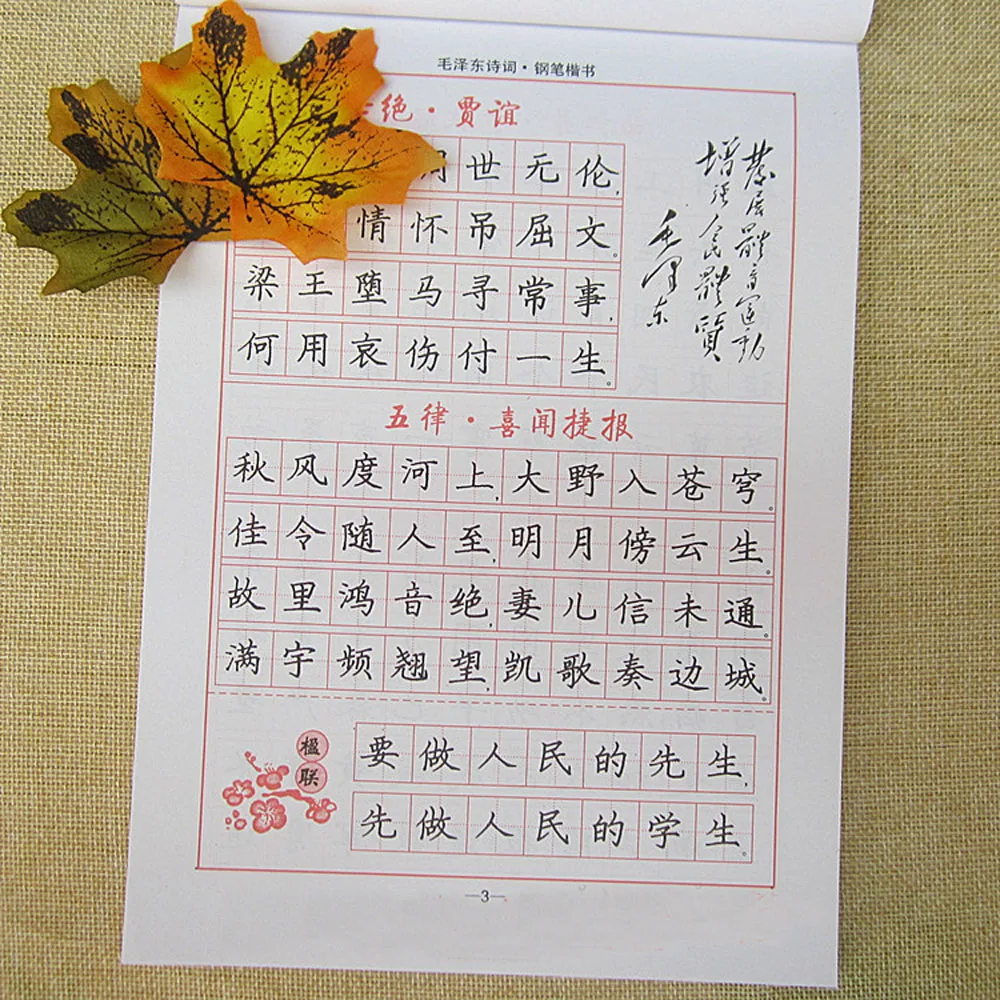 毛泽东诗词·钢笔楷书
绝·贾谊
世无伦,
情怀吊屈文。
梁王堕马寻常事,
何用哀伤付一生。
發展體育運動
增强人民體質
毛泽东
五律·喜闻捷报
秋风度河上,大野入苍穹。
佳令随人至,明月傍云生。
故里鸿音绝,妻儿信未通。
满宇频翘望,凯歌奏边城。
楹联
要做人民的先生,
先做人民的学生。
—3—